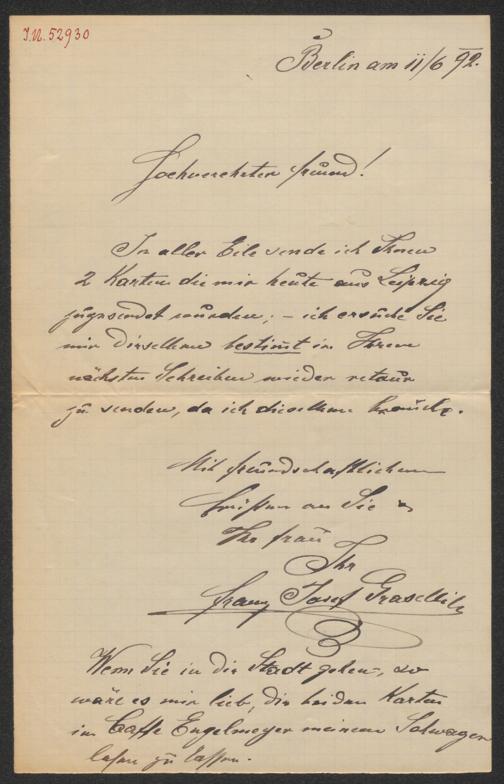 I.N. 52930
Berlin am 11/6 92.
Hochverehrter Freund!
In aller Eile sende ich Ihnen
2 Karten die mir heute aus Leipzig
zugesendet wurden; – ich ersuche Sie
mir dieselben bestimt in Ihrem
nächsten Schreiben wieder retour
zu senden, da ich dieselben brauche.
Mit freundschaftlichen
Grüßen an Sie &
Ihr Frau
Ihr
Franz Josef Graselli
Wenn Sie in die Stadt gehen, so
wäre es mir lieb, die beiden Karten
im Caffe Engelmeyer meinem Schwager
lesen zu lassen.